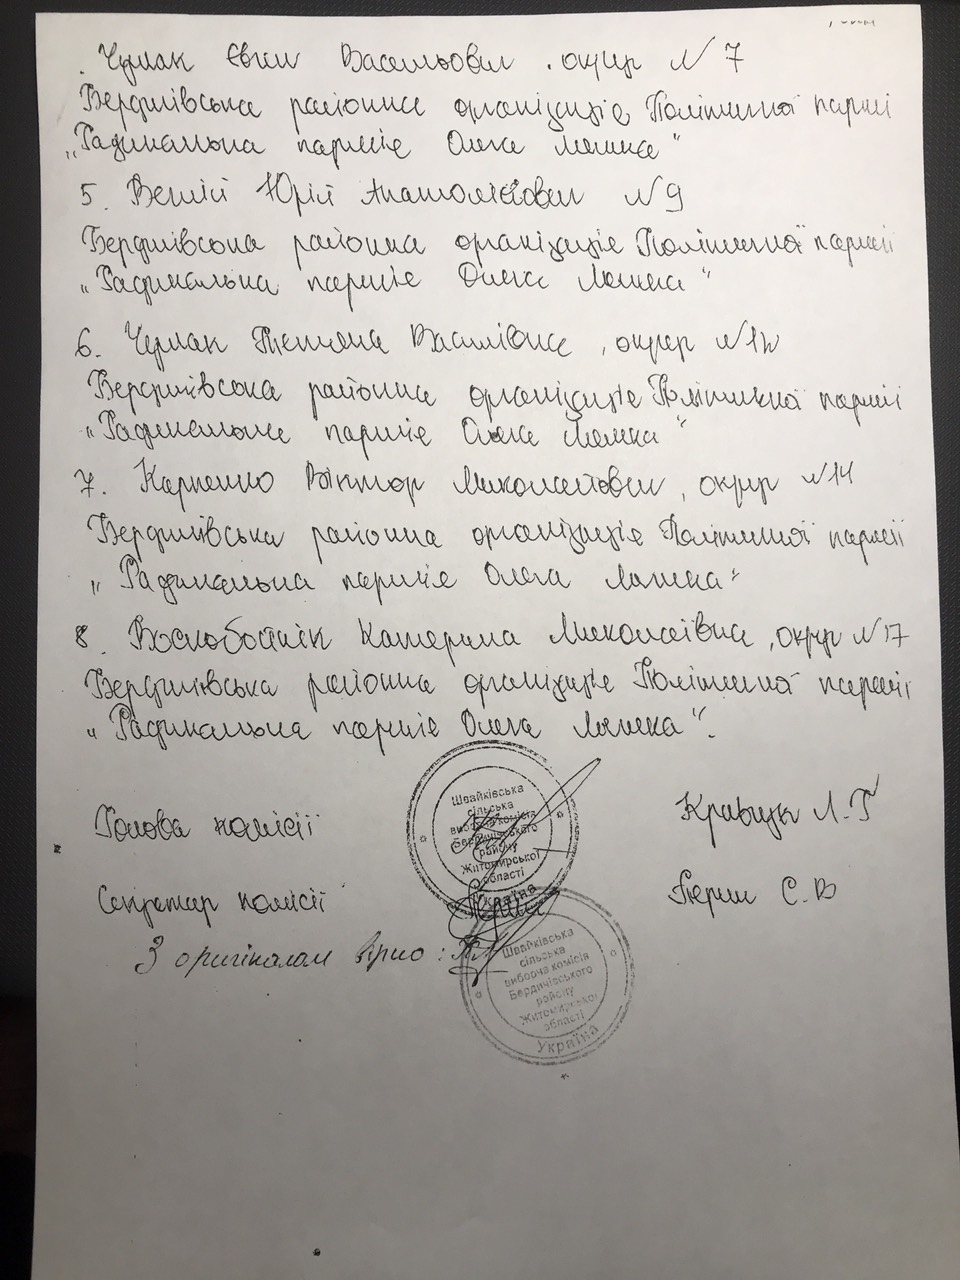 Чумак Євген Васильович. округ №7
Бердичівська районна організація Політичної партії
„Радикальна партія Олега Ляшка"
5. Юрій Анатолійович №9
Бердичівська районна організація Політичної партії
„Радикальна партія Олега Ляшка"
6. Чумак Тетяна Василівна, округ
Бердичівська районна організація Політичної партії
„Радикальна партія Олега Ляшка"
7. Карпенко Віктор Миколайович, округ №14
Бердичівська районна організація Політичної партії
„Радикальна партія Олега Ляшка"
8. Воскобойнік Катерина Миколаївна, округ №17
Бердичівська районна організація Політичної партії
„Радикальна партія Олега Ляшка".
Голова комісії Л.Г
Секретар комісії С.В
З оригіналом вірно:
Швайківська
сільська
виборча комісія
Бердичівського
району
Житомирської
області
Україна
Швайківська
сільська
виборча комісія
Бердичівського
району
Житомирської
області
Україна